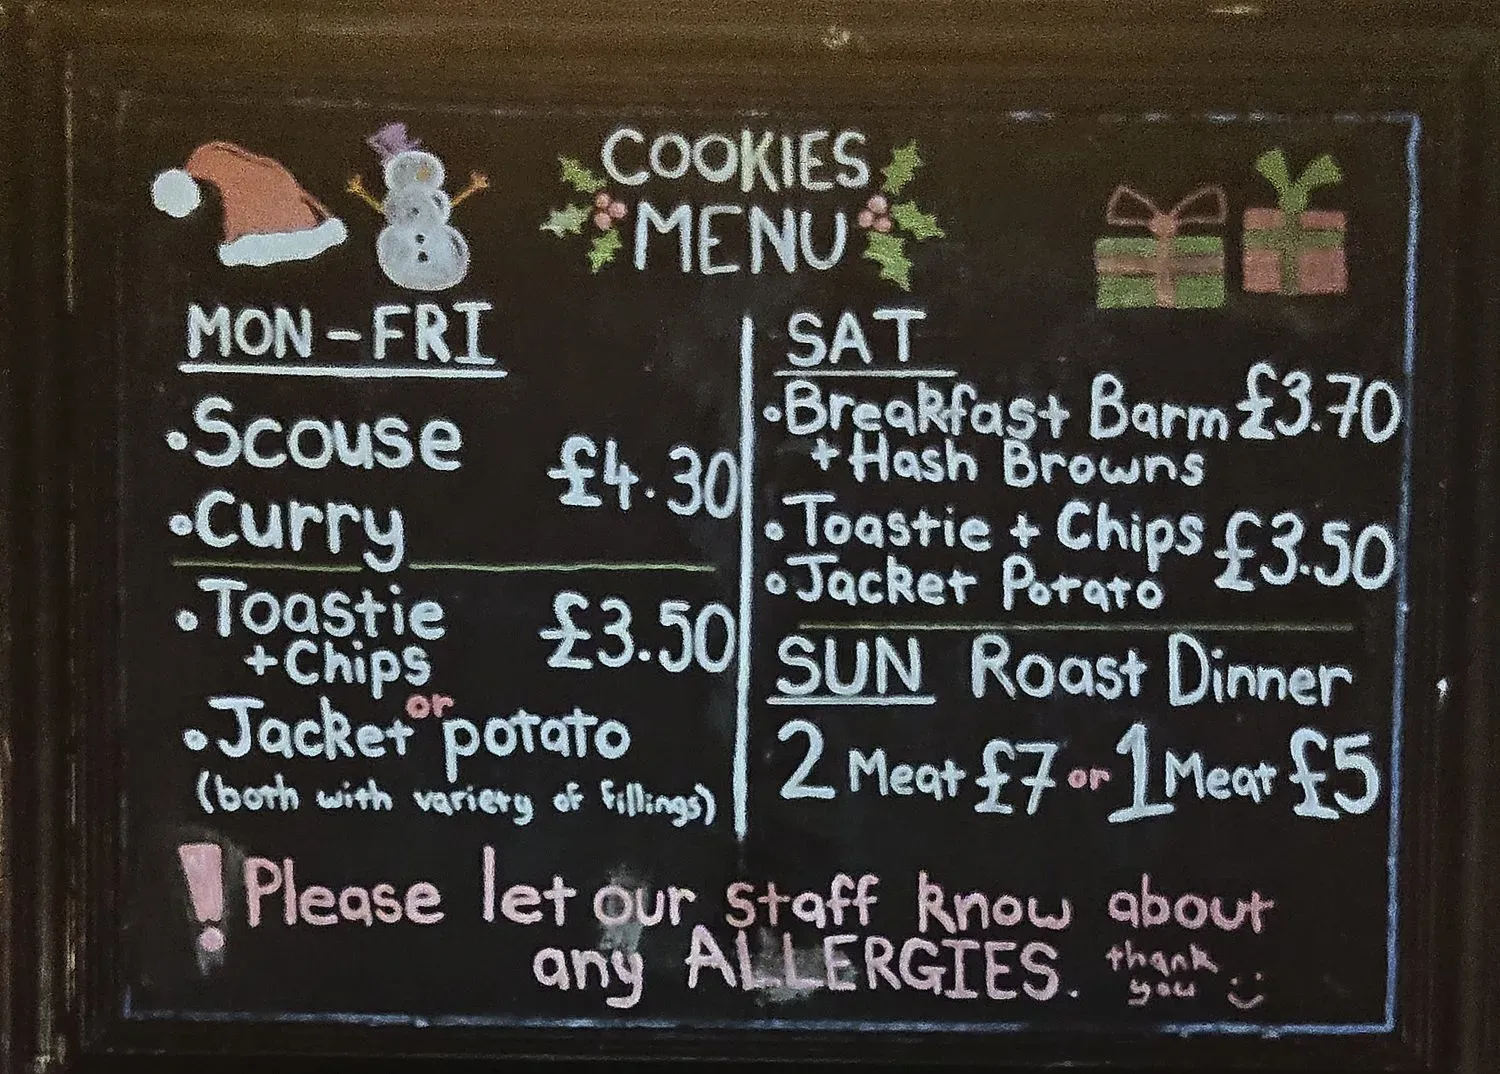 COOKIES
MENU
MON-FRI
•Scouse
£4.30
•Curry
•Toastie
+Chips
£3.50
or
•Jacket potato
(both with variety of fillings)
SAT
•Breakfast Barm £3.70
+ Hash Browns
•Toastie + Chips
£3.50
•Jacket Potato
SUN Roast Dinner
2 Meat £7 or 1 Meat £5
! Please let our staff know about
any ALLERGIES. thank
you :)